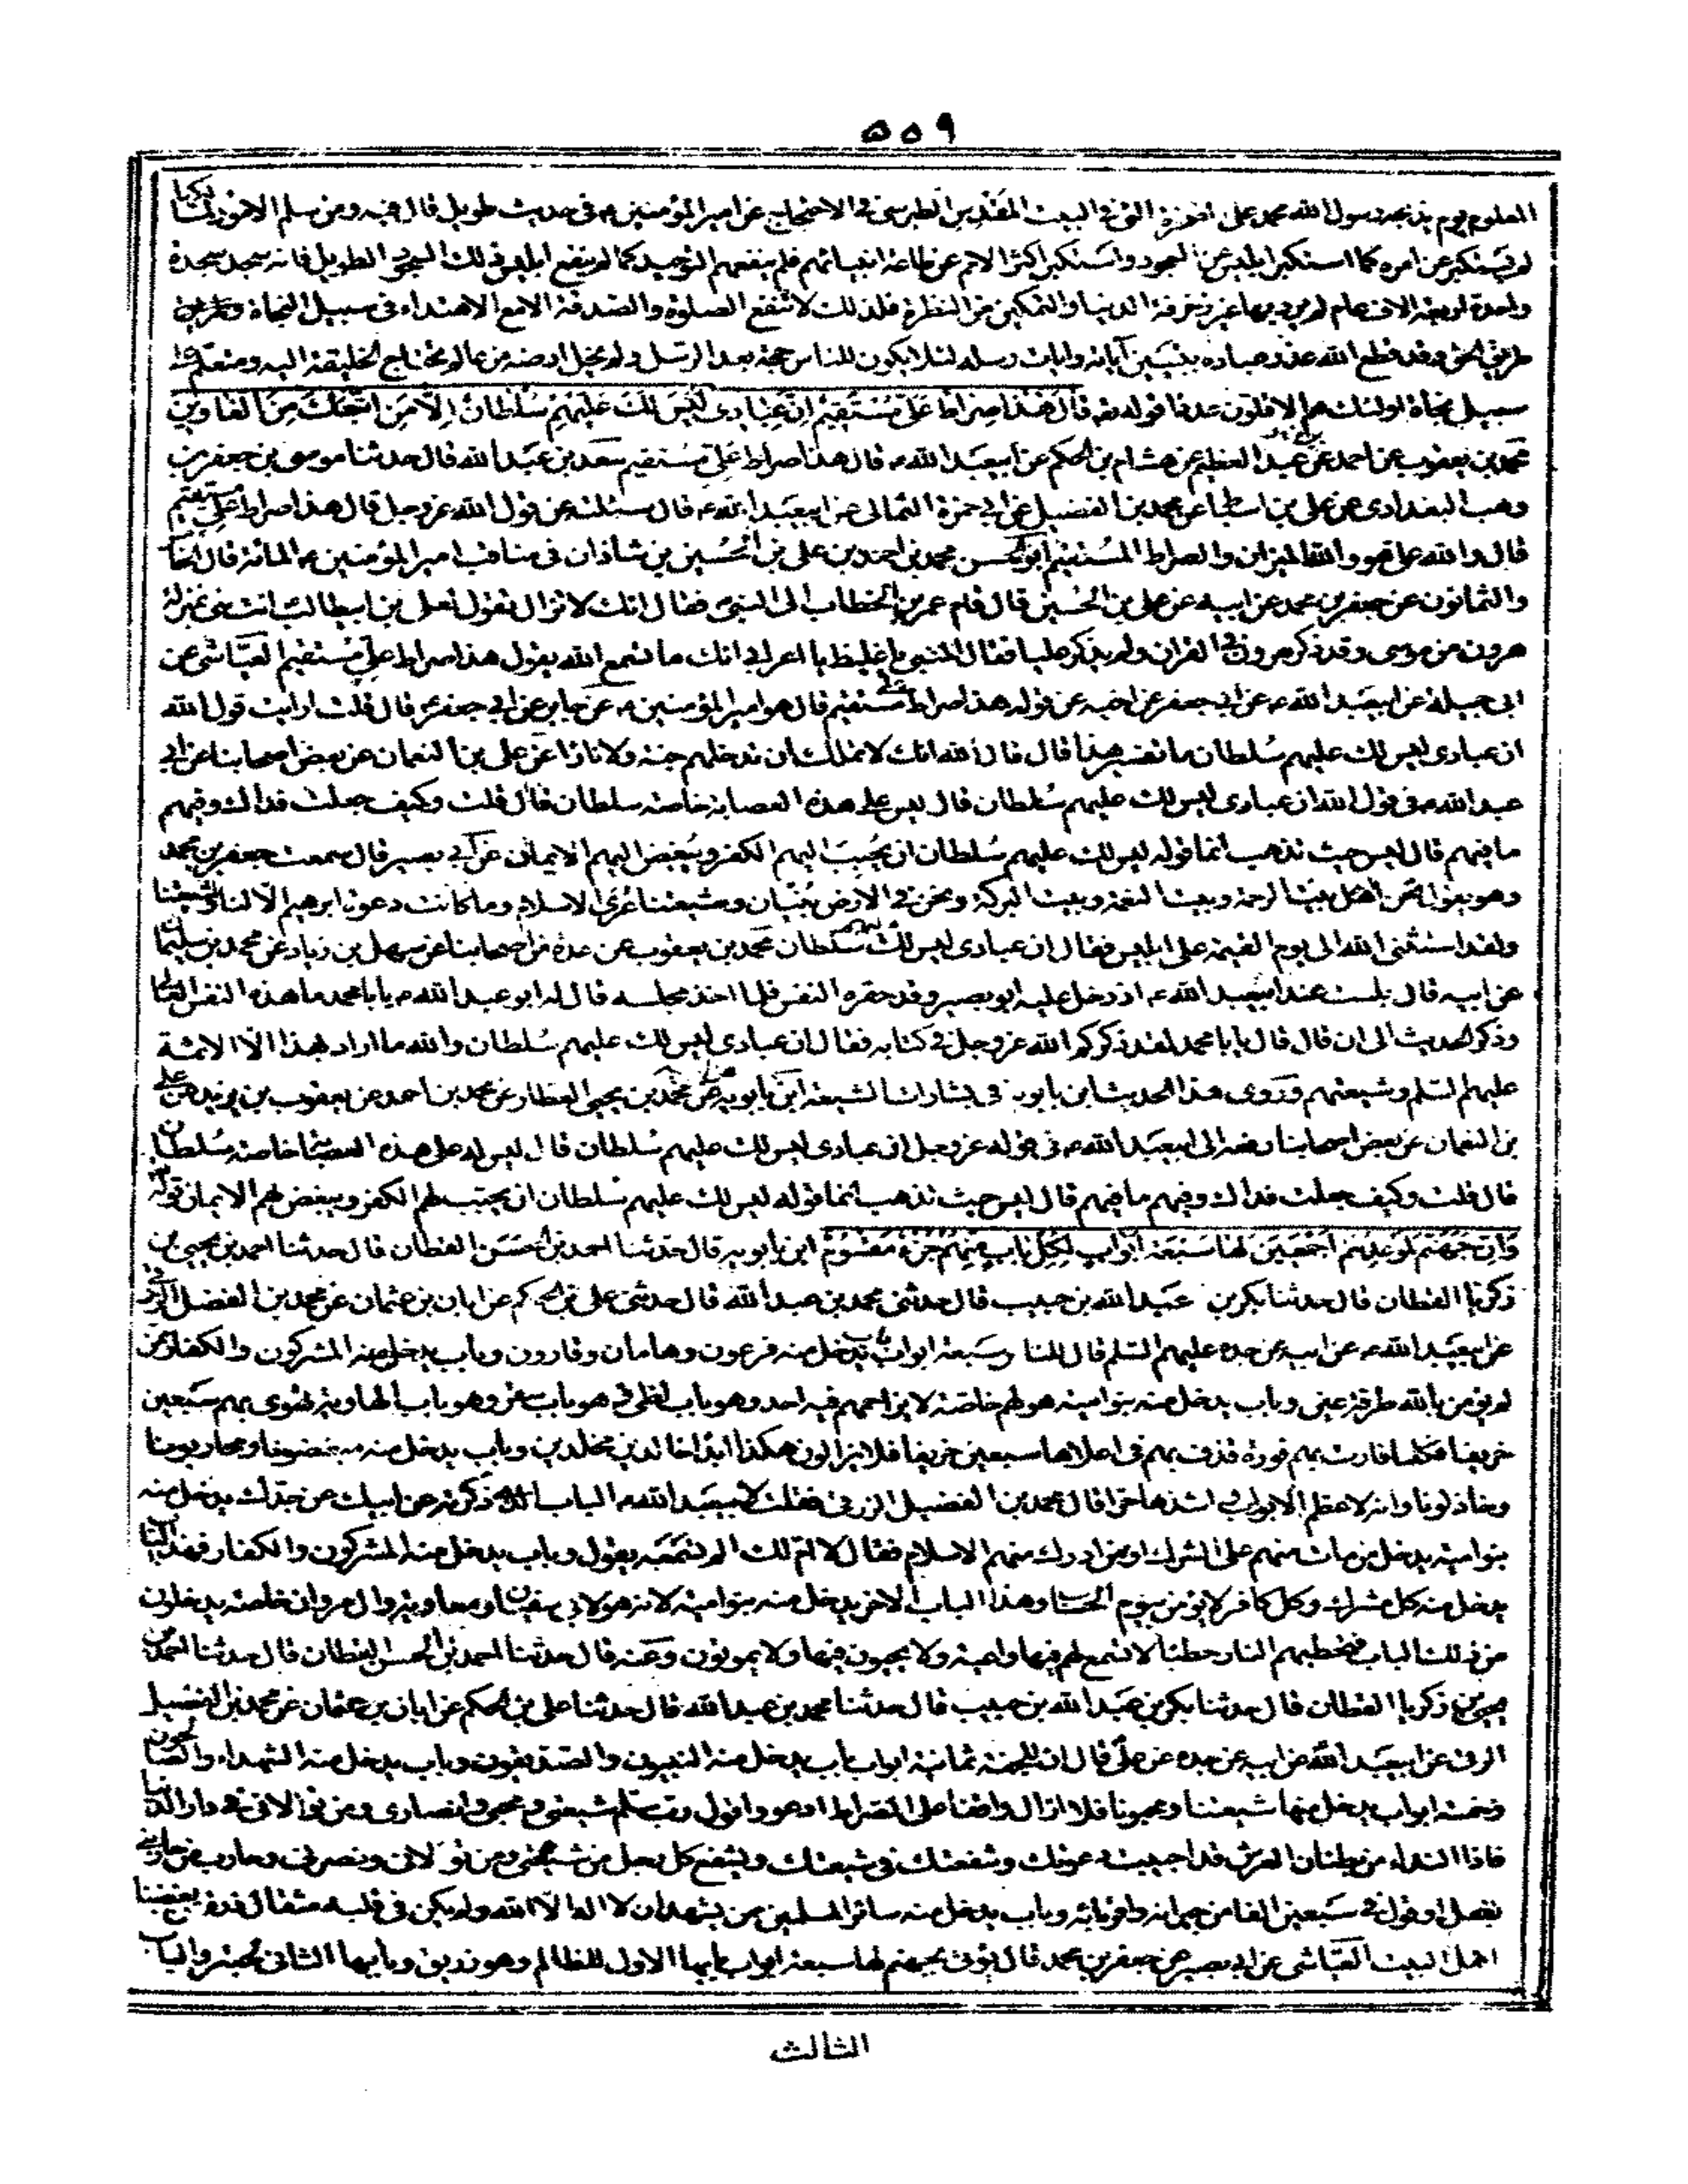 ٥٥٩
المعلوم يوم يذبحه رسول الله محمد على الصخرة التي في البيت المقدس الطبرسي في الاحتجاج عن امير المؤمنين ع في حديث طويل قال فيه ومن سلم الامور لمالكها
لم يستكبر عن امره كما استكبر ابليس عن السجود واستكبر اكثر الامم عن طاعة انبيائهم فلم ينفعهم التوحيد كما لم ينفع ابليس ذلك السجود الطويل فانه سجد سجدة
واحدة اربعة الاف عام لم يرد بها غير زخرف الدنيا والتمكين من النظرة فلذلك لا تنفع الصلوة والصدقة الا مع الاهتداء في سبيل النجاة وطريق
طريق الحق وقد قطع الله عذر عباده بتبيين آياته وارسال رسله لئلا يكون للناس حجة بعد الرسل ولم يخل ارضه من عالم يحتاج الخليقة اليه ومتعلم على
سبيل نجاة اولئك هم الاقلون عددا قوله تعالى قال هذا صراط علي مستقيم ان عبادي ليس لك عليهم سلطان الا من اتبعك من الغاوين
محمد بن يعقوب عن احمد عن عبد العظيم عن هشام بن الحكم عن ابيعبد الله ع قال هذا صراط علي مستقيم سعد بن عبد الله قال حدثنا موسى بن جعفر بن
وهب البغدادي عن علي بن اسباط عن محمد بن الفضيل عن ابي حمزة الثمالي عن ابيعبد الله ع قال سئلته عن قول الله عز وجل قال هذا صراط علي مستقيم
قال والله علي هو والله الميزان والصراط المستقيم ابو الحسن محمد بن احمد بن علي بن الحسين بن شاذان في مناقب امير المؤمنين ع المائة قال الخامس
والثمانون عن جعفر بن محمد عن ابيه عن علي بن الحسين قال قام عمر بن الخطاب الى النبي فقال انك لا تزال تقول لعلي بن ابيطالب انت مني بمنزلة
هرون من موسى وقد ذكر هرون في القران ولم يذكر عليا فقال النبي يا غليظ يا اعرابي انك ما تسمع الله يقول هذا صراط علي مستقيم العياشي عن
ابي جميلة عن ابيعبد الله ع عن ابي جعفر عن اخيه عن قوله هذا صراط علي مستقيم قال هو امير المؤمنين ع عن جابر عن ابي جعفر ع قال قلت ارايت قول الله
ان عبادي ليس لك عليهم سلطان ما تفسير هذا قال قال الله انك لا تملك ان تدخلهم جنة ولا نارا عن علي بن النعمان عن بعض اصحابنا عن ابي
عبد الله ع في قول الله ان عبادي ليس لك عليهم سلطان قال ليس على هذه العصابة خاصة سلطان قال قلت وكيف جعلت فداك وفيهم
ما فيهم قال ليس حيث تذهب انما قوله ليس لك عليهم سلطان ان يحبب اليهم الكفر ويبغض اليهم الايمان عن ابي بصير قال سمعت جعفر بن محمد
وهو يقول نحن اهل بيت الرحمة وبيت النعمة وبيت البركة ونحن في الارض بنيان وشيعتنا عرى الاسلام وما كانت دعوة ابرهيم الا لنا ولشيعتنا
ولقد استثنى الله الى يوم القيمة على ابليس فقال ان عبادي ليس لك عليهم سلطان محمد بن يعقوب عن عدة من اصحابنا عن سهل بن زياد عن محمد بن سليمان
عن ابيه قال جلست عند ابيعبد الله ع اذ دخل عليه ابو بصير وقد حفزه النفس فلما اخذ مجلسه قال له ابو عبد الله ع يا ابا محمد ما هذه النفس العالي
وذكر الحديث الى ان قال قال يا ابا محمد لقد ذكركم الله عز وجل في كتابه فقال ان عبادي ليس لك عليهم سلطان والله ما اراد بهذا الا الائمة
عليهم السلم وشيعتهم وروى هذا الحديث ابن بابويه في بشارات الشيعة ابن بابويه عن محمد بن يحيى العطار عن محمد بن احمد عن يعقوب بن يزيد عن علي
بن النعمان عن بعض اصحابنا رفعه الى ابيعبد الله ع في قوله عز وجل ان عبادي ليس لك عليهم سلطان قال ليس له على هذه العصابة خاصة سلطان
قال قلت وكيف جعلت فداك وفيهم ما فيهم قال ليس حيث تذهب انما قوله ليس لك عليهم سلطان ان يحبب لهم الكفر ويبغض لهم الايمان قوله
وان جهنم لموعدهم اجمعين لها سبعة ابواب لكل باب منهم جزء مقسوم ابن بابويه قال حدثنا احمد بن الحسن القطان قال حدثنا احمد بن يحيى بن
زكريا القطان قال حدثنا بكر بن عبد الله بن حبيب قال حدثني محمد بن عبد الله قال حدثني علي بن الحكم عن ابان بن عثمان عن محمد بن الفضيل الزرقي
عن ابيعبد الله ع عن ابيه عن جده عليهم السلم قال للنار سبعة ابواب باب يدخل منه فرعون وهامان وقارون وباب يدخل منه المشركون والكفار ممن
لم يؤمن بالله طرفة عين وباب يدخل منه بنو امية هو لهم خاصة لا يزاحمهم فيه احد وهو باب لظى هو باب سقر وهو باب الهاوية تهوي بهم سبعين
خريفا فكلما فارت بهم فورة قذف بهم في اعلاها سبعين خريفا فلا يزالون هكذا ابدا خالدين مخلدين وباب يدخل منه مبغضونا ومحاربونا
وخاذلونا وانه لاعظم الابواب اشدها حرا قال محمد بن الفضيل الزرقي فقلت لابيعبد الله ع الباب الذي ذكرته عن ابيك عن جدك يدخل منه
بنو امية يدخل من مات منهم على الشرك او من ادرك منهم الاسلام فقال لا ام لك الم تسمعه يقول وباب يدخل منه المشركون والكفار فهذا الباب
يدخل منه كل مشرك وكل كافر لا يؤمن بيوم الحساب وهذا الباب الاخر يدخل منه بنو امية لانه هو لابي سفيان ومعاوية وال مروان خاصة يدخلون
من ذلك الباب فتحطمهم النار حطما لا تسمع لهم فيها واعية ولا يحيون فيها ولا يموتون وعنه قال حدثنا احمد بن الحسن القطان قال حدثنا احمد بن
يحيى بن زكريا القطان قال حدثنا بكر بن عبد الله بن حبيب قال حدثنا محمد بن عبد الله قال حدثنا علي بن الحكم عن ابان بن عثمان عن محمد بن الفضيل
الزرقي عن ابيعبد الله عن ابيه عن جده عن علي قال ان للجنة ثمانية ابواب باب يدخل منه النبيون والصديقون وباب يدخل منه الشهداء والصالحون
وخمسة ابواب يدخل منها شيعتنا ومحبونا فلا ازال واقفا على الصراط ادعو واقول رب سلم شيعتي ومحبي وانصاري ومن توالاني في دار الدنيا
فاذا النداء من بطنان العرش قد اجيبت دعوتك وشفعتك في شيعتك ويشفع كل رجل من شيعتي ومن تولاني ونصرني وحارب من حاربني
بفعل او قول في سبعين الفا من جيرانه واقربائه وباب يدخل منه سائر المسلمين ممن يشهد ان لا اله الا الله ولم يكن في قلبه مثقال ذرة من بغضنا
اهل البيت العياشي عن ابي بصير عن جعفر بن محمد قال يؤتى بجهنم لها سبعة ابواب بابها الاول للظالم وهو زريق وبابها الثاني لحبتر والباب
الثالث